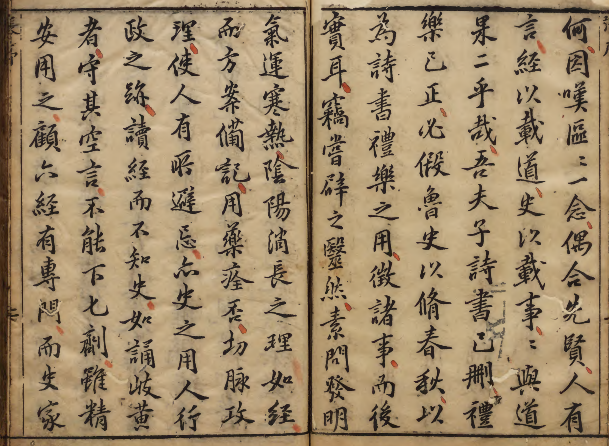 何因嘆區〻一念偶合先賢人有
言經以載道史以載事〻與道
果二乎哉吾夫子詩書已刪禮
樂已正必假魯史以脩春秋以
為詩書禮樂之用徵諸事而後
實耳竊嘗辟之醫然素問發明
氣運寒熱陰陽淌長之理如經
而方案備記用藥痊否切脉政
理使人有所避忌亦史之用人行
政之跡讀經而不知史如誦岐黄
者守其空言不能下七劑雖精
安用之顧六經有專門而史家